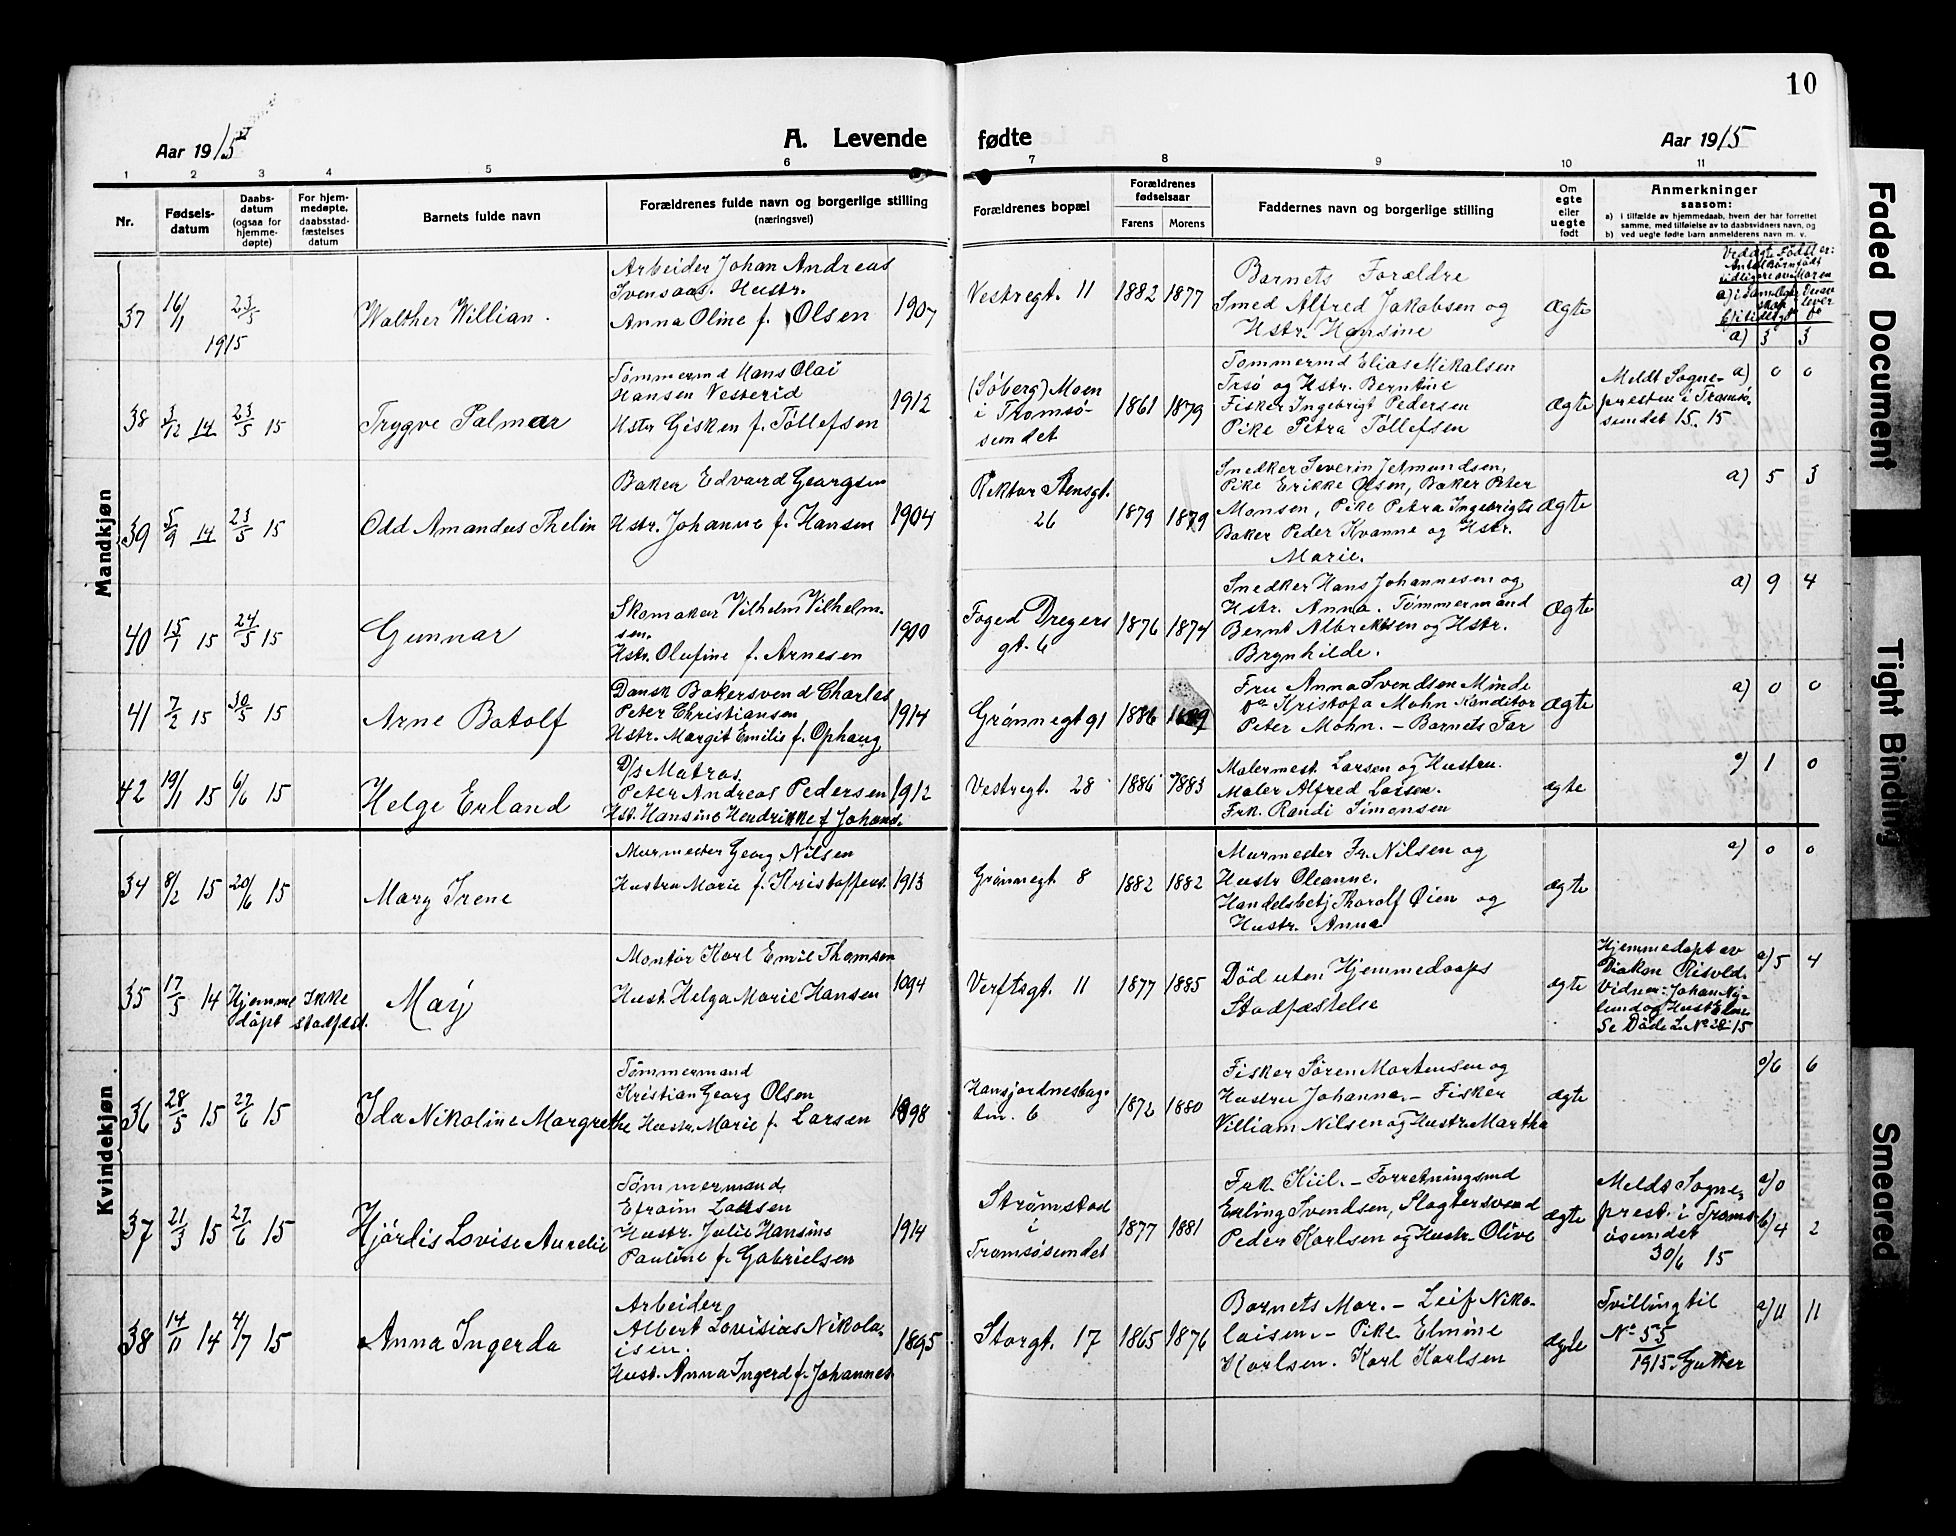 10
Aar 1915
A. Levende
fødte
Aar 1915
1 2 3 4 5 6 7 8 9 10 11
Nr.
Fødsels-
datum
Daabs-
datum
(ogsaa for
hjemme-
døpte)
For hjem-
medøpte,
daabsstad-
fæstelses
datum
Barnets fulde navn
Forældrenes fulde navn og borgerlige stilling
(næringsvei)
Forældrenes bopæl
Forældrenes
fødselsaar
Farens Morens
Faddernes navn og borgerlige stilling
Om
egte
eller
uegte
født
Anmerkninger
saasom:
a) i tilfælde av hjemmedaab, hvem der har forrettet
samme, med tilføielse av to daabsvidners navn, og
b) ved uegte fødte barn anmelderens navn m. v.
Mandkjøn
37 16/1 23/5
1915
Walther Willian.
Arbeider Johan Andreas
Svensaas. Hustr.
Anna Oline f. Olsen
1907
Vestregt. 11
1882 1877
Barnets Forældre
Smed Alfred Jakobsen og
Hstr. Hansine
Ægte
a) 3 3
38 3/12 14 23/5 15
Trygve Palmar
Tømmermd Hans Olai
Hansen Vesterid
Hstr Gisken f. Tøllefsen
1912
(Søberg) Moen
i Tromsø-
sundet
1861 1879
Tømmermd Elias Mikalsen
Trsø og Hstr. Berntine
Fisker Ingebrigt Pedersen
Pike Petra Tøllefsen
Ægte
Meldt Sogne-
presten i Tromsø-
sundet 15. 15
a) 0 0
39 5/9 14 23/5 15
Odd Amandus Thelin
Baker Edvard Georgsen
Hstr. Johanne f. Hansen
1904
Rektor Stensgt.
26
1879 1879
Snedker Severin Jetmundsen,
Pike Erikke Olsen, Baker Peter
Monsen, Pike Petra Ingebrigts
Baker Peder Kvanne og Hstr.
Marie.
Ægte
a) 5 3
40 15/1 15 24/5 15
Gunnar
Skomaker Vilhelm Vilhelm-
sen.
Hstr. Olufine f. Arnesen
1900
Foged Dreyers
gt. 6
1876 1874
Snedker Hans Johannesen og
Hstr. Anna. Tømmermand
Bernt Albrektsen og Hstr.
Brynhilde.
Ægte
a) 9 4
41 7/2 15 30/5 15
Arne Botolf
Dansk Bakersvend Charles
Peter Christiansen
Hstr. Margit Emilie f. Ophaug
1914
Grønnegt 91
1886
Fru Anna Svendsen Minde
Kristofa Mohn Kanditor
Peter Mohn. - Barnets Far
Ægte
a) 0 0
42 19/11 15 6/6 15
Helge Erland
D/s Matros.
Peter Andreas Pedersen
Hst. Hansine Hendrikke f Johans.
1912
Vestregt. 28
1886 1883
Malermest. Larsen og Hustru.
Maler Alfred Larsen.
Frk. Randi Simonsen
ægte
a) 1 0
Kvindekjøn
34 8/2 15 20/6 15
Mary Irene
Murmester Georg Nilsen
Hustru Marie f. Kristoffers.
1913
Grønnegt 8
1882 1882
Murmester Fr. Nilsen og
Hustr Oleanne.
Handelsbetj Thorolf Øien og
Hustr. Anna
ægte
a) 0 0
35 17/5 14 Hjemme
døpt
Ikke
stadfæst.
Maÿ
Montør Karl Emil Thomsen
Hust. Helga Marie Hansen
Verftsgt. 11
1877 1885
Død uten Hjemmedaaps
Stadfæstelse
ægte
Hjemmedøpt av
Diakon Risvold.
Vidner: Johan Ny-
lund og Hust
Se Døde L. No 15
a) 5 4
36 28/5 15 27/6 15
Ida Nikoline Margrethe
Tømmermand
Kristian Georg Olsen
Hustr. Marie f. Larsen
1898
Hansjordnesbug-
ten. 6
1872 1880
Fisker Søren Mortensen og
Hustru Johanna. - Fisker
Villiam Nilsen og Hustr Martha
ægte
a) 6 6
37 21/3 15 27/6 15
Hjørdis Lovise Aurelie
Tømmermand
Efraim Larsen
Hustr. Julie Hansine
Pauline f. Gabrielsen
1914
Strømstad
i
Tromsøsundet
1877 1881
Frk. Kiil. - Forretningsmd
Erling Svendsen, Slagtersvend
Peder Karlsen og Hustr. Olive
Ægte
Meldt Sogne-
prest. i Troms-
øsundet
30/6 15
a) 0
b) 4 2
38 14/11 14 4/7 15
Anna Ingerda
Arbeider
Albert Lovisias Nikola-
isen.
Hust. Anna Ingerd f. Johannes.
1895
Storgt. 17
1865 1876
Barnets Mor. - Leif Niko-
laisen. - Pike Elmine
Karlsen. Karl Karlsen
ægte
Tvilling til
No 55
1915 Gutter
a) 11 11
Faded Document
Tight Binding
Smeared